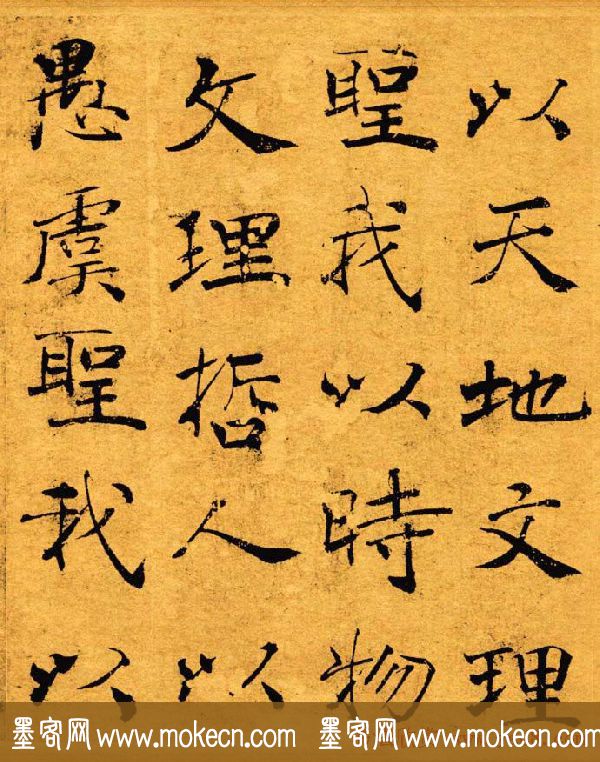 以天地文理
聖我以時物
文理哲人以
愚虞聖我以
墨客网 www.mokecn.com 墨客网 www.mokecn.com